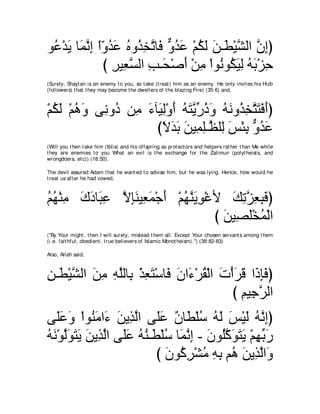 (إِنَّ الشَّيْطَـنَ لَكُمْ عَدُوٌّ فَاتَّخِذُوهُ عَدُوّاً إِنَّمَا يَدْعُو
حِزْبَهُ لِيَكُونُواْ مِنْ أَصْحَـبِ السَّعِيرِ )
(Surely, Shaytan is an enemy to you, so take (treat) him as an enemy. He only invites his Hizb
(followers) that they may become the dwellers of the blazing Fire) (35:6) and,
(أَفَتَتَّخِذُونَهُ وَذُرِّيَّتَهُ أَوْلِيَآءَ مِن دُونِى وَهُمْ لَكُمْ
عَدُوٌّ بِئْسَ لِلظَّـلِمِينَ بَدَلاً)
(Will you then take him (Iblis) and his offspring as protectors and helpers rather than Me while
they are enemies to you What an evil is the exchange for the Zalimun (polytheists, and
wrongdoers, etc)) (18:50).
The devil assured Adam that he wanted to advise him, but he was lying. Hence, how would he
treat us after he had vowed,
(فَبِعِزَّتِكَ لأغْوِيَنَّهُمْ أَجْمَعِينَإِلاَّ عِبَادَكَ مِنْهُمُ
الْمُخْلَصِينَ )
("By Your might, then I will surely, mislead them all. Except Your chosen servants among them
(i.e. faithful, obedient, true believers of Islamic Monotheism).") (38:82-83)
Also, Allah said,
(فَإِذَا قَرَأْتَ الْقُرْءَانَ فَاسْتَعِذْ بِاللَّهِ مِنَ الشَّيْطَـنِ
الرَّجِيمِ )
(إِنَّهُ لَيْسَ لَهُ سُلْطَانٌ عَلَى الَّذِينَ ءَامَنُواْ وَعَلَى
رَبِّهِمْ يَتَوَكَّلُونَ - إِنَّمَا سُلْطَـنُهُ عَلَى الَّذِينَ يَتَوَلَّوْنَهُ
وَالَّذِينَ هُم بِهِ مُشْرِكُونَ )